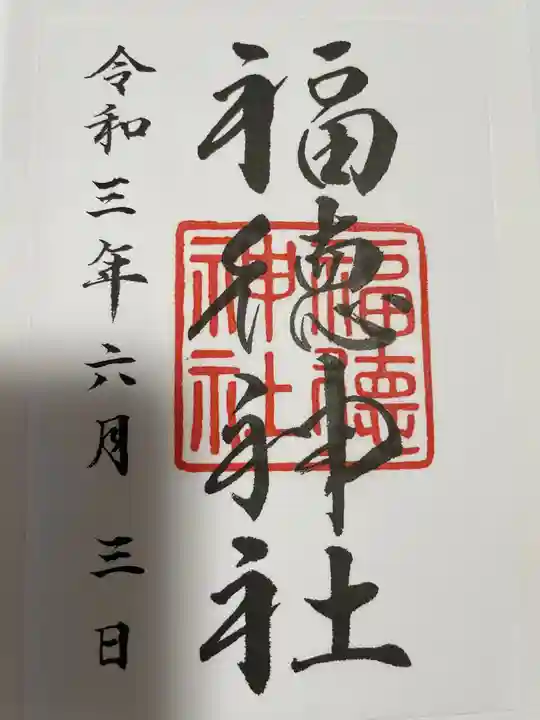 福徳神社
福徳
神社
令和三年六月三日